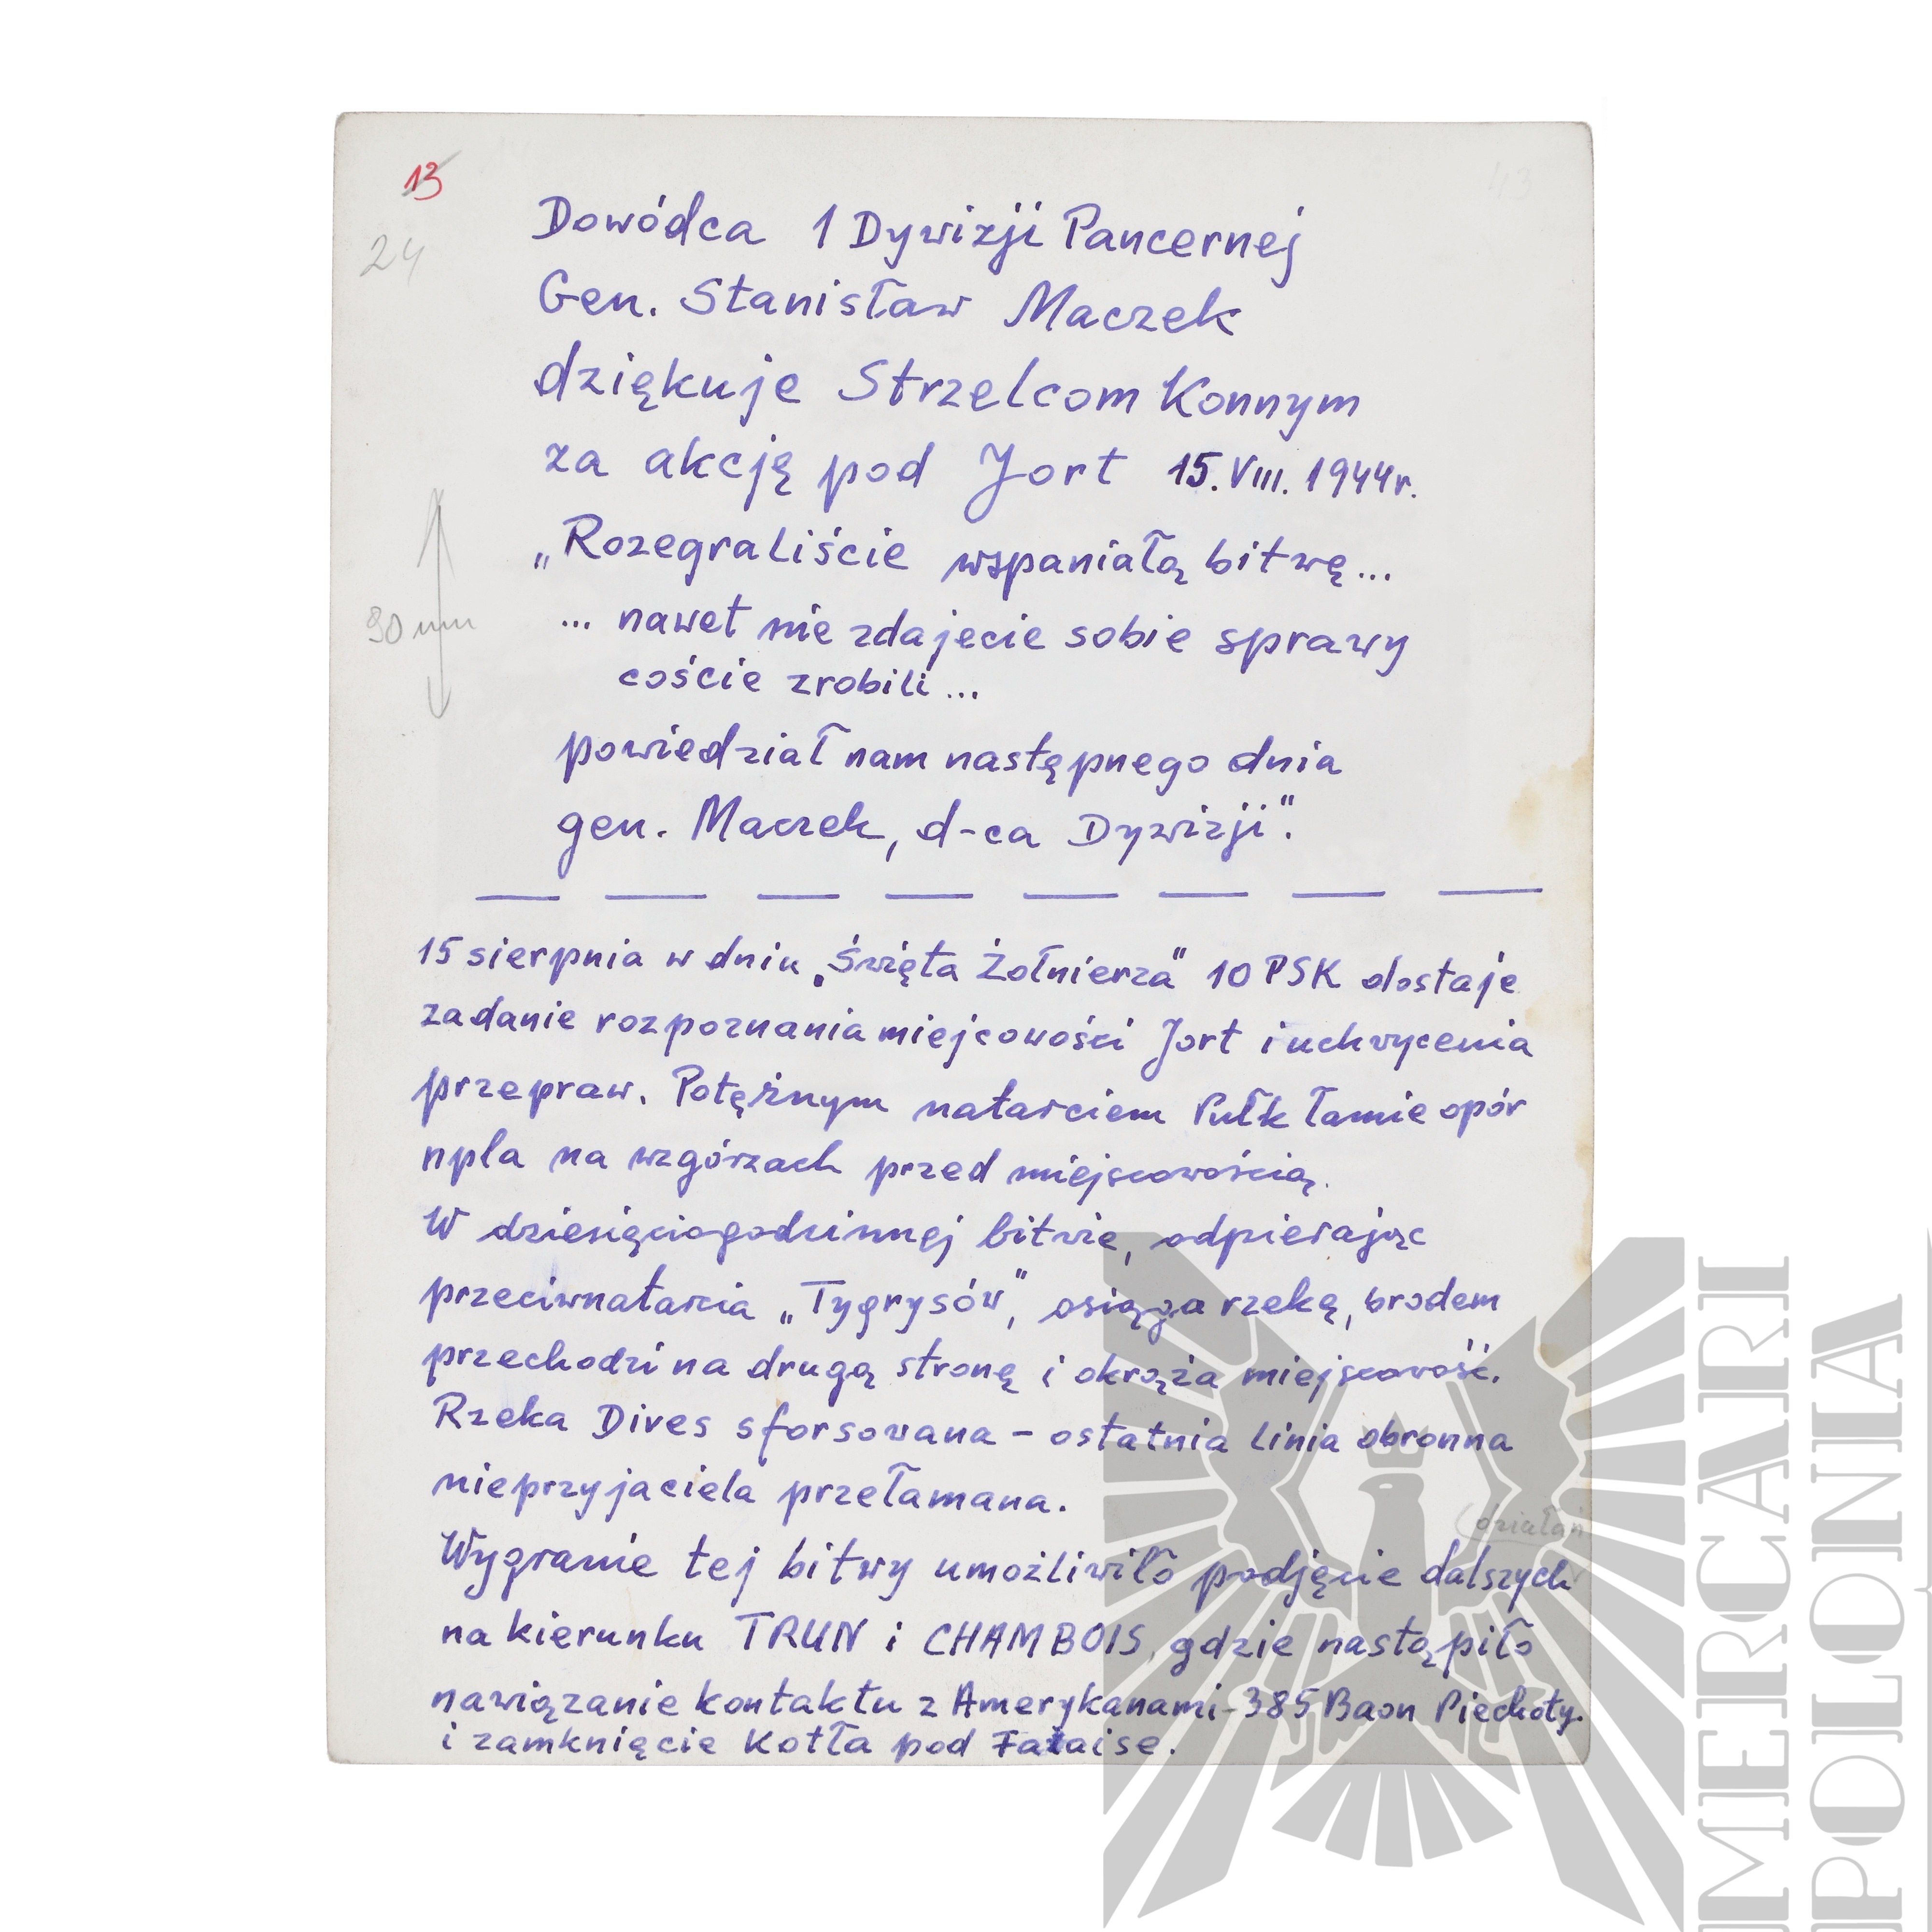 13
43
24
Dowódca 1 Dywizji Pancernej
Gen. Stanisław Maczek
dziękuje Strzelcom Konnym
za akcję pod Jort 15.VIII.1944r.
„Rozegraliście wspaniałą bitwę...
... nawet nie zdajecie sobie sprawy
90 mm
coście zrobili...
powiedział nam następnego dnia
gen. Maczek, d-ca Dywizji".
15 sierpnia w dniu „Święta Żołnierza" 10 PSK dostaje
zadanie rozpoznania miejscowości Jort i uchwycenia
przepraw. Potężnym natarciem Pułk łamie opór
npla na wzgórzach przed miejscowością.
W dziesięciogodzinnej bitwie, odpierając
przeciwnatarcia „Tygrysów", osiąga rzekę, brodem
przechodzi na drugą stronę i okrąża miejscowość.
Rzeka Dives sforsowana - ostatnia linia obronna
nieprzyjaciela przełamana.
(działań
Wygranie tej bitwy umożliwiło podjęcie dalszych
na kierunku TRUN i CHAMBOIS, gdzie nastąpiło
nawiązanie kontaktu z Amerykanami - 385 Baon Piechoty.
i zamknięcie Kotła pod Falaise.
IMERCARI
POLONIA